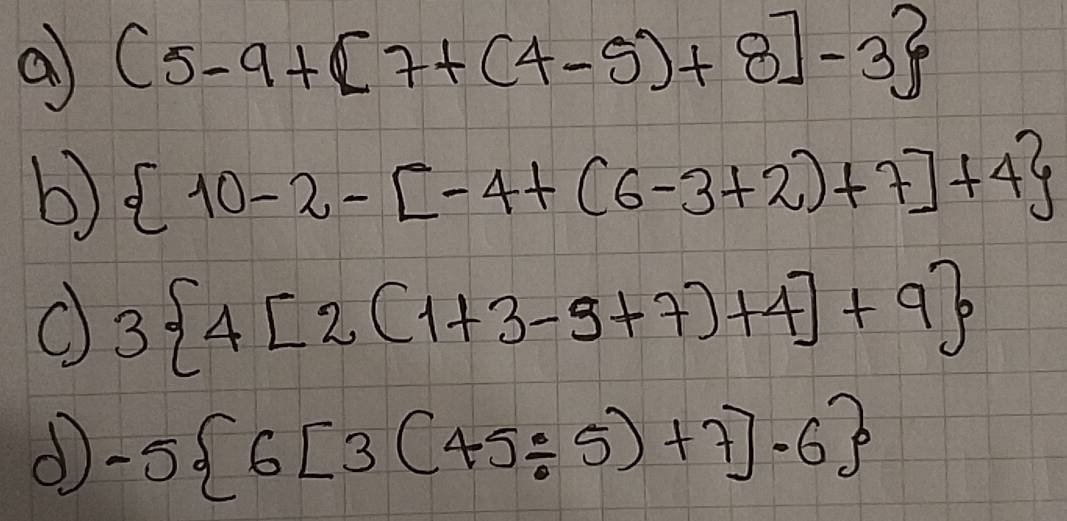 a) (5-9+[7+(4-5)+8]-3}
b) {10-2-[-4+(6-3+2)+7]+4}
c) 3{4[2(1+3-9+7)+4]+9}
d) -5{6[3(45÷5)+7]-6}